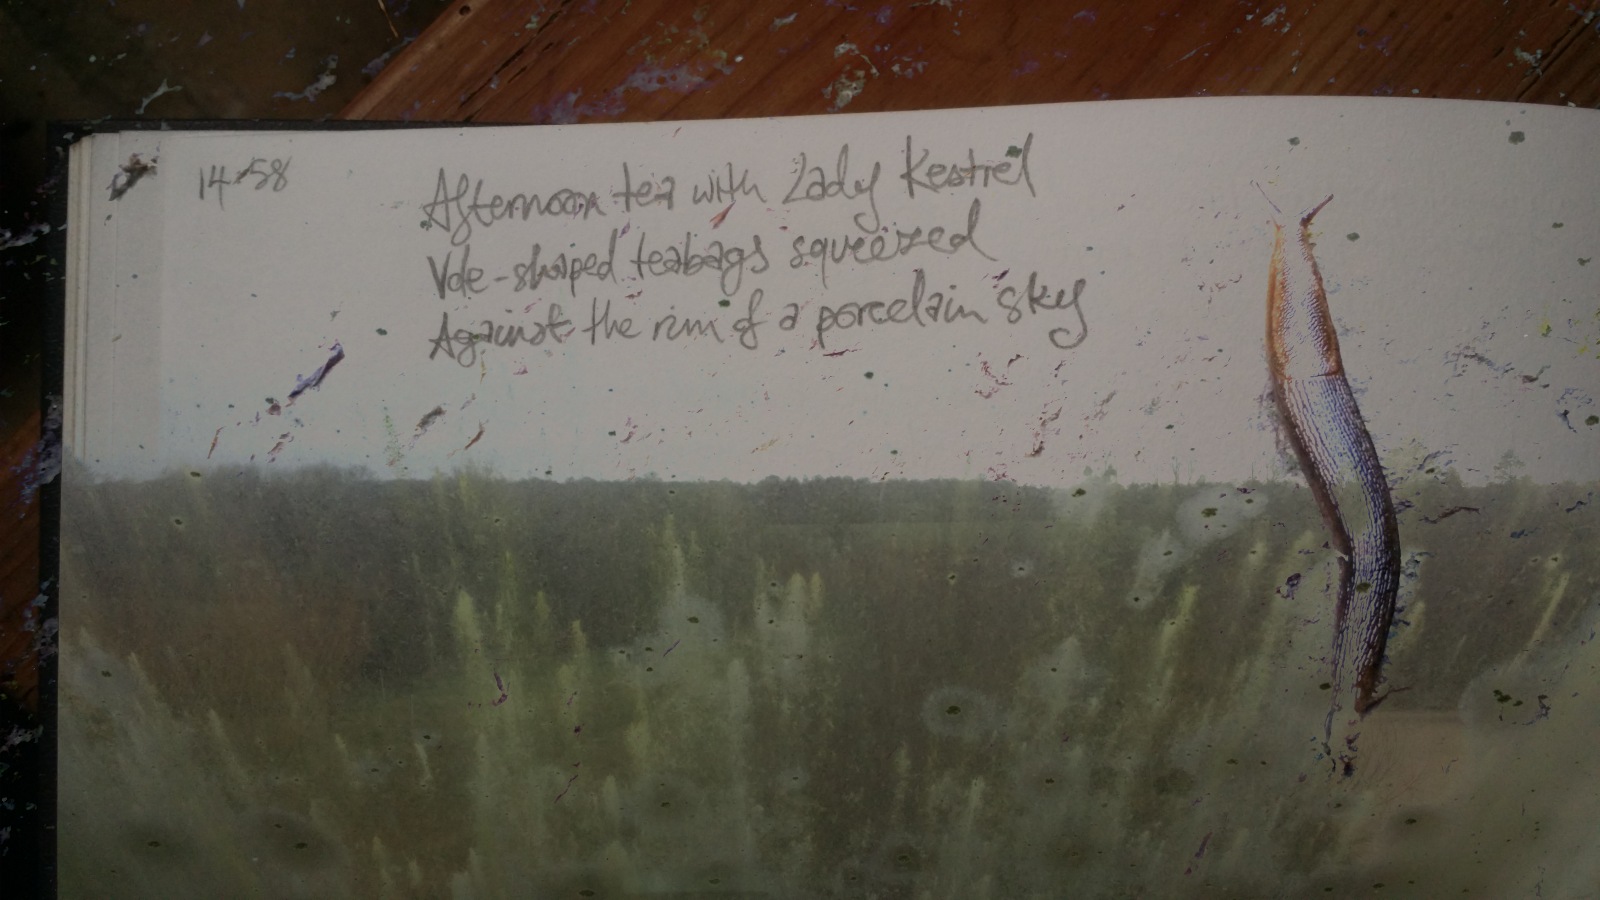 14:58
Afternoon tea with Lady Kestrel
Vole-shaped teabags squeezed
Against the rim of a porcelain sky